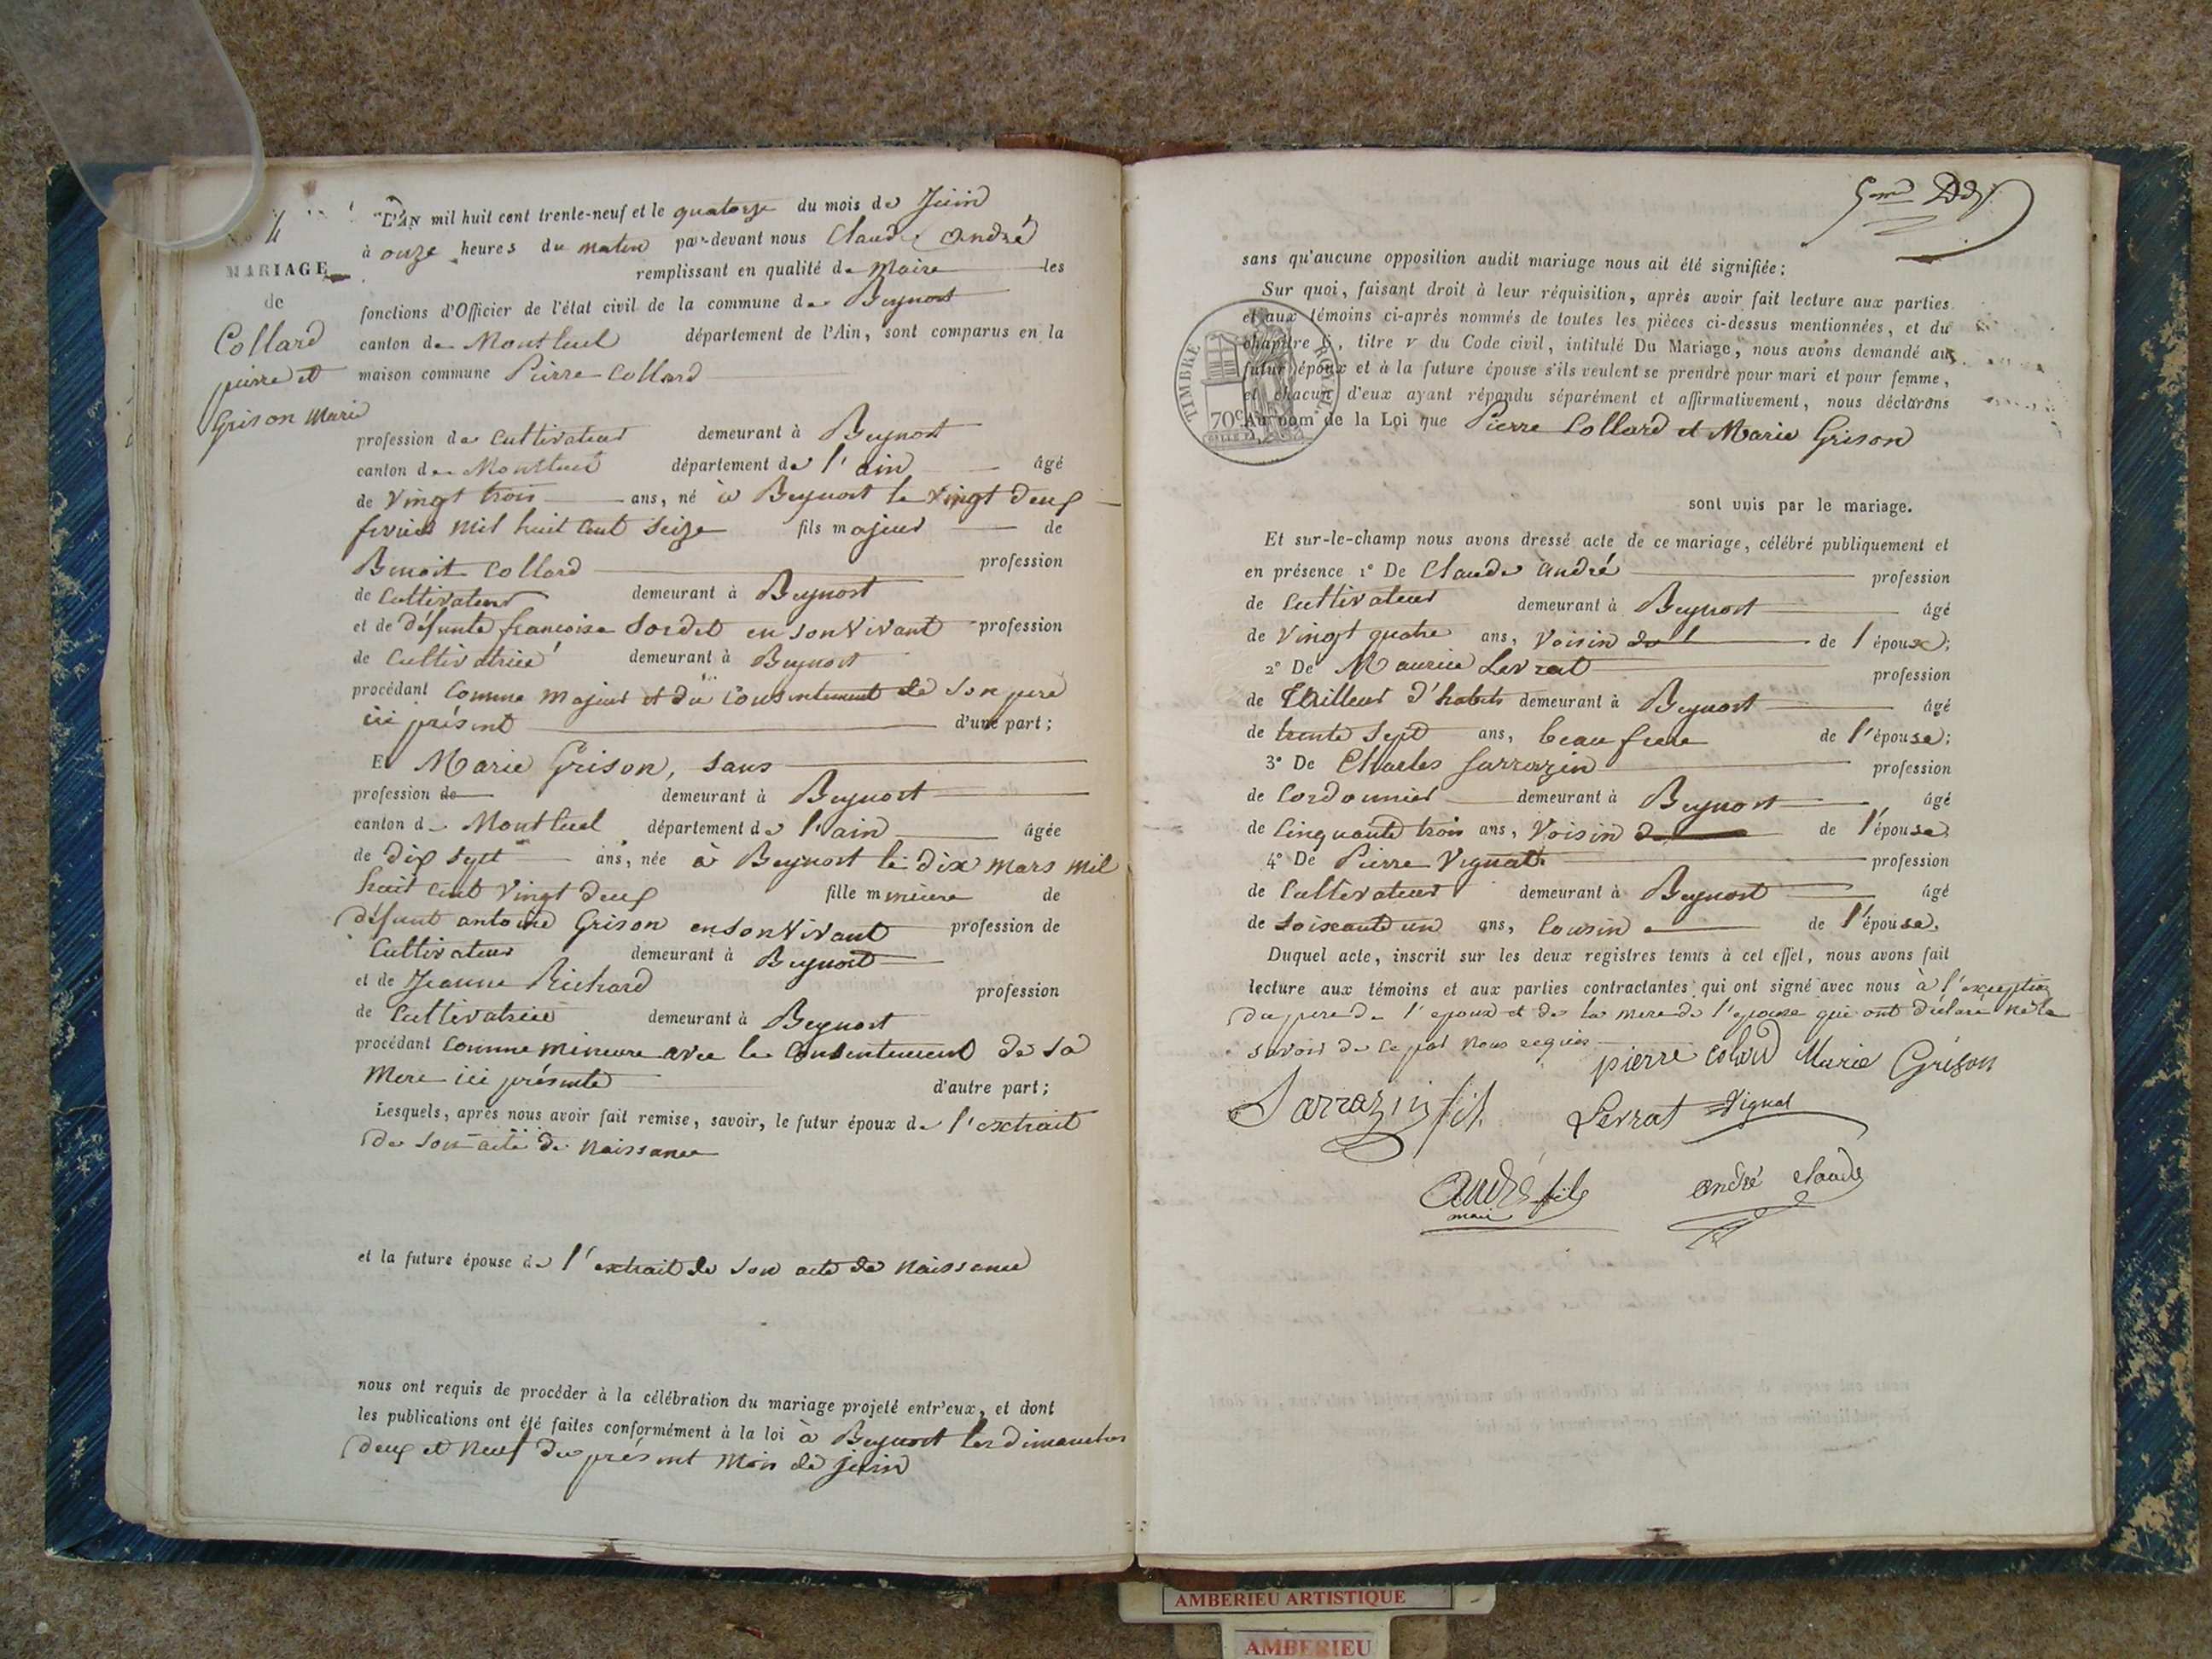 N° 4
MARIAGE
de
Collard
pierre et
Grison Marie
L'AN mil huit cent trente-neuf et le quatorze du mois de Juin
à onze heures du matin par-devant nous Claude André
remplissant en qualité de Maire les
fonctions d'Officier de l'état civil de la commune de Beynost
canton de Montluel département de l'Ain, sont comparus en la
maison commune Pierre Collard
profession de Cultivateur demeurant à Beynost
canton de Montluel département de l'ain âgé
de Vingt trois ans, né à Beynost le vingt deux
fevrier mil huit cent seize fils majeur de
Benoit Collard profession
de Cultivateur demeurant à Beynost
et de défunte francoise Sordet en son Vivant profession
de Cultivatrice demeurant à Beynost
procédant Comme majeur et du Consentement de son pere
ici présent d'une part;
Et Marie Grison, sans
profession de demeurant à Beynost
canton de Montluel département de l'ain âgée
de dix sept ans, née à Beynost le dix mars mil
huit cent Vingt deux fille mineure de
défunt antoine Grison en son Vivant profession de
Cultivateur demeurant à Beynost
et de Jeanne Richard profession
de Cultivatrice demeurant à Beynost
procédant Comme mineure avec le Consentement de sa
Mere ici présente d'autre part;
Lesquels, après nous avoir fait remise, savoir, le futur époux de l'extrait
de son acte de Naissance
et la future épouse de l'extrait de son acte de Naissance
nous ont requis de procéder à la célébration du mariage projeté entr'eux, et dont
les publications ont été faites conformément à la loi à Beynost les dimanches
deux et Neuf du présent mois de juin
sans qu'aucune opposition audit mariage nous ait été signifiée;
Sur quoi, faisant droit à leur réquisition, après avoir fait lecture aux parties
et aux témoins ci-après nommés de toutes les pièces ci-dessus mentionnées, et du
chapitre 6, titre v du Code civil, intitulé Du Mariage, nous avons demandé au
futur époux et à la future épouse s'ils veulent se prendre pour mari et pour femme,
et chacun d'eux ayant répondu séparément et affirmativement, nous déclarons
Au nom de la Loi que Pierre Collard et Marie Grison
TIMBRE ROYAL
70c
sont unis par le mariage.
Et sur-le-champ nous avons dressé acte de ce mariage, célébré publiquement et
en présence 1° De Claude André profession
de Cultivateur demeurant à Beynost âgé
de Vingt quatre ans, Voisin de l'épouse;
2° De Maurice Levrat profession
de Tailleur d'habits demeurant à Beynost âgé
de trente sept ans, beau frere de l'épouse;
3° De Charles Sarrazin profession
de Cordonnier demeurant à Beynost âgé
de Cinquante trois ans, Voisin de l'épouse
4° De Pierre Vignat profession
de Cultivateur demeurant à Beynost âgé
de Soixante un ans, Cousin de l'épouse.
Duquel acte, inscrit sur les deux registres tenus à cet effet, nous avons fait
lecture aux témoins et aux parties contractantes qui ont signé avec nous à l'exception
du pere de l'epoux et de la mere de l'epouse qui ont déclaré ne le
savoir de ce par nous requis
pierre colard Marie Grison
Sarrazin fils Levrat Vignat
André fils andré claude
maire
AMBERIEU ARTISTIQUE
AMBERIEU